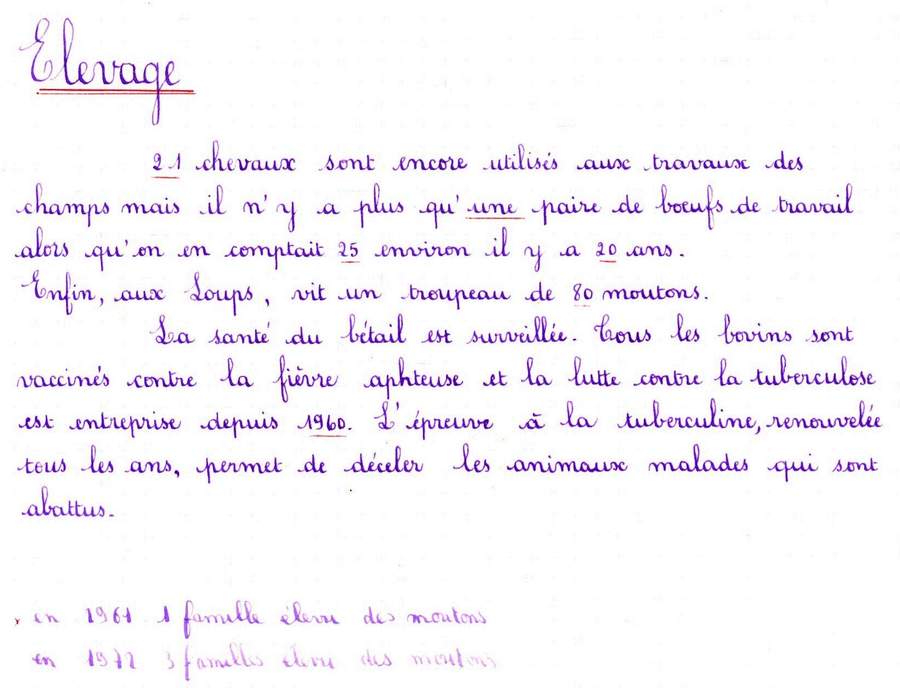 Elevage
21 chevaux sont encore utilisés aux travaux des
champs mais il n'y a plus qu'une paire de bœufs de travail
alors qu'on en comptait 25 environ il y a 20 ans.
Enfin, aux Loups, vit un troupeau de 80 moutons.
La santé du bétail est surveillée. Tous les bovins sont
vaccinés contre la fièvre aphteuse et la lutte contre la tuberculose
est entreprise depuis 1960. L'épreuve à la tuberculine, renouvelée
tous les ans, permet de déceler les animaux malades qui sont
abattus.
en 1961 1 famille élève des moutons
en 1972 3 familles élève des moutons